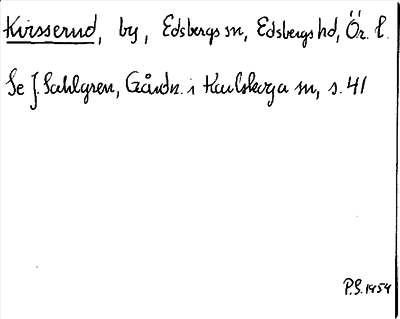 Kvisserud, by, Edsbergs sn, Edsbergs hd, Ör. l.
Se J. Sahlgren, Gårdn. i Karlskoga sn, s. 41
P.G. 1954